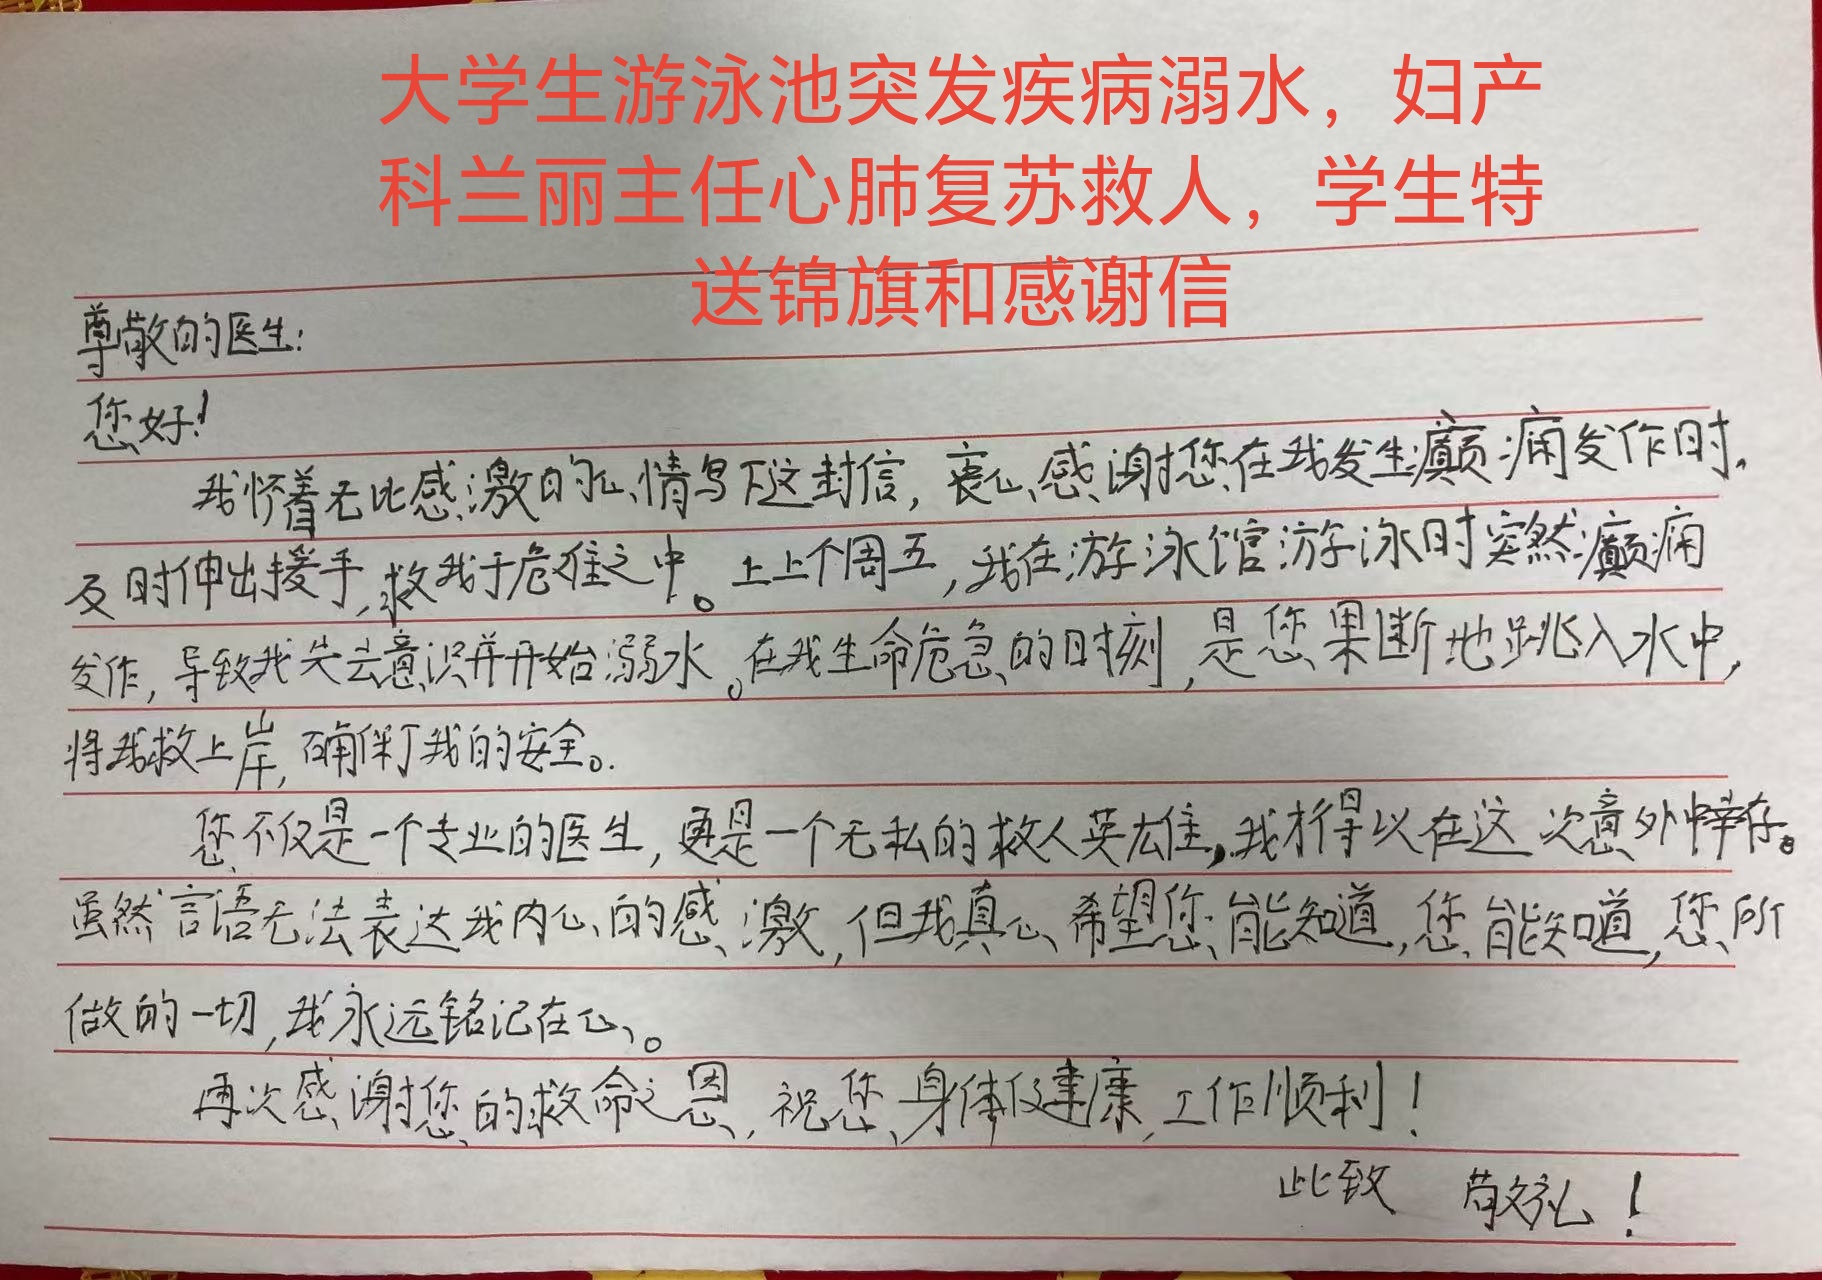 大学生游泳池突发疾病溺水，妇产
科兰丽主任心肺复苏救人，学生特
送锦旗和感谢信
尊敬的医生：
您好！
我怀着无比感激的心情写下这封信，衷心感谢您在我发生癫痫发作时，
及时伸出援手，救我于危难之中。上上个周五，我在游泳馆游泳时突然癫痫
发作，导致我失去意识并开始溺水。在我生命危急的时刻，是您果断地跳入水中，
将我救上岸，确保了我的安全。
您不仅是一个专业的医生，更是一个无私的救人英雄，我才得以在这次意外中幸存。
虽然言语无法表达我内心的感激，但我真心希望您能知道，您能知道，您所
做的一切，我永远铭记在心。
再次感谢您的救命之恩，祝您身体健康，工作顺利！
此致 敬礼！